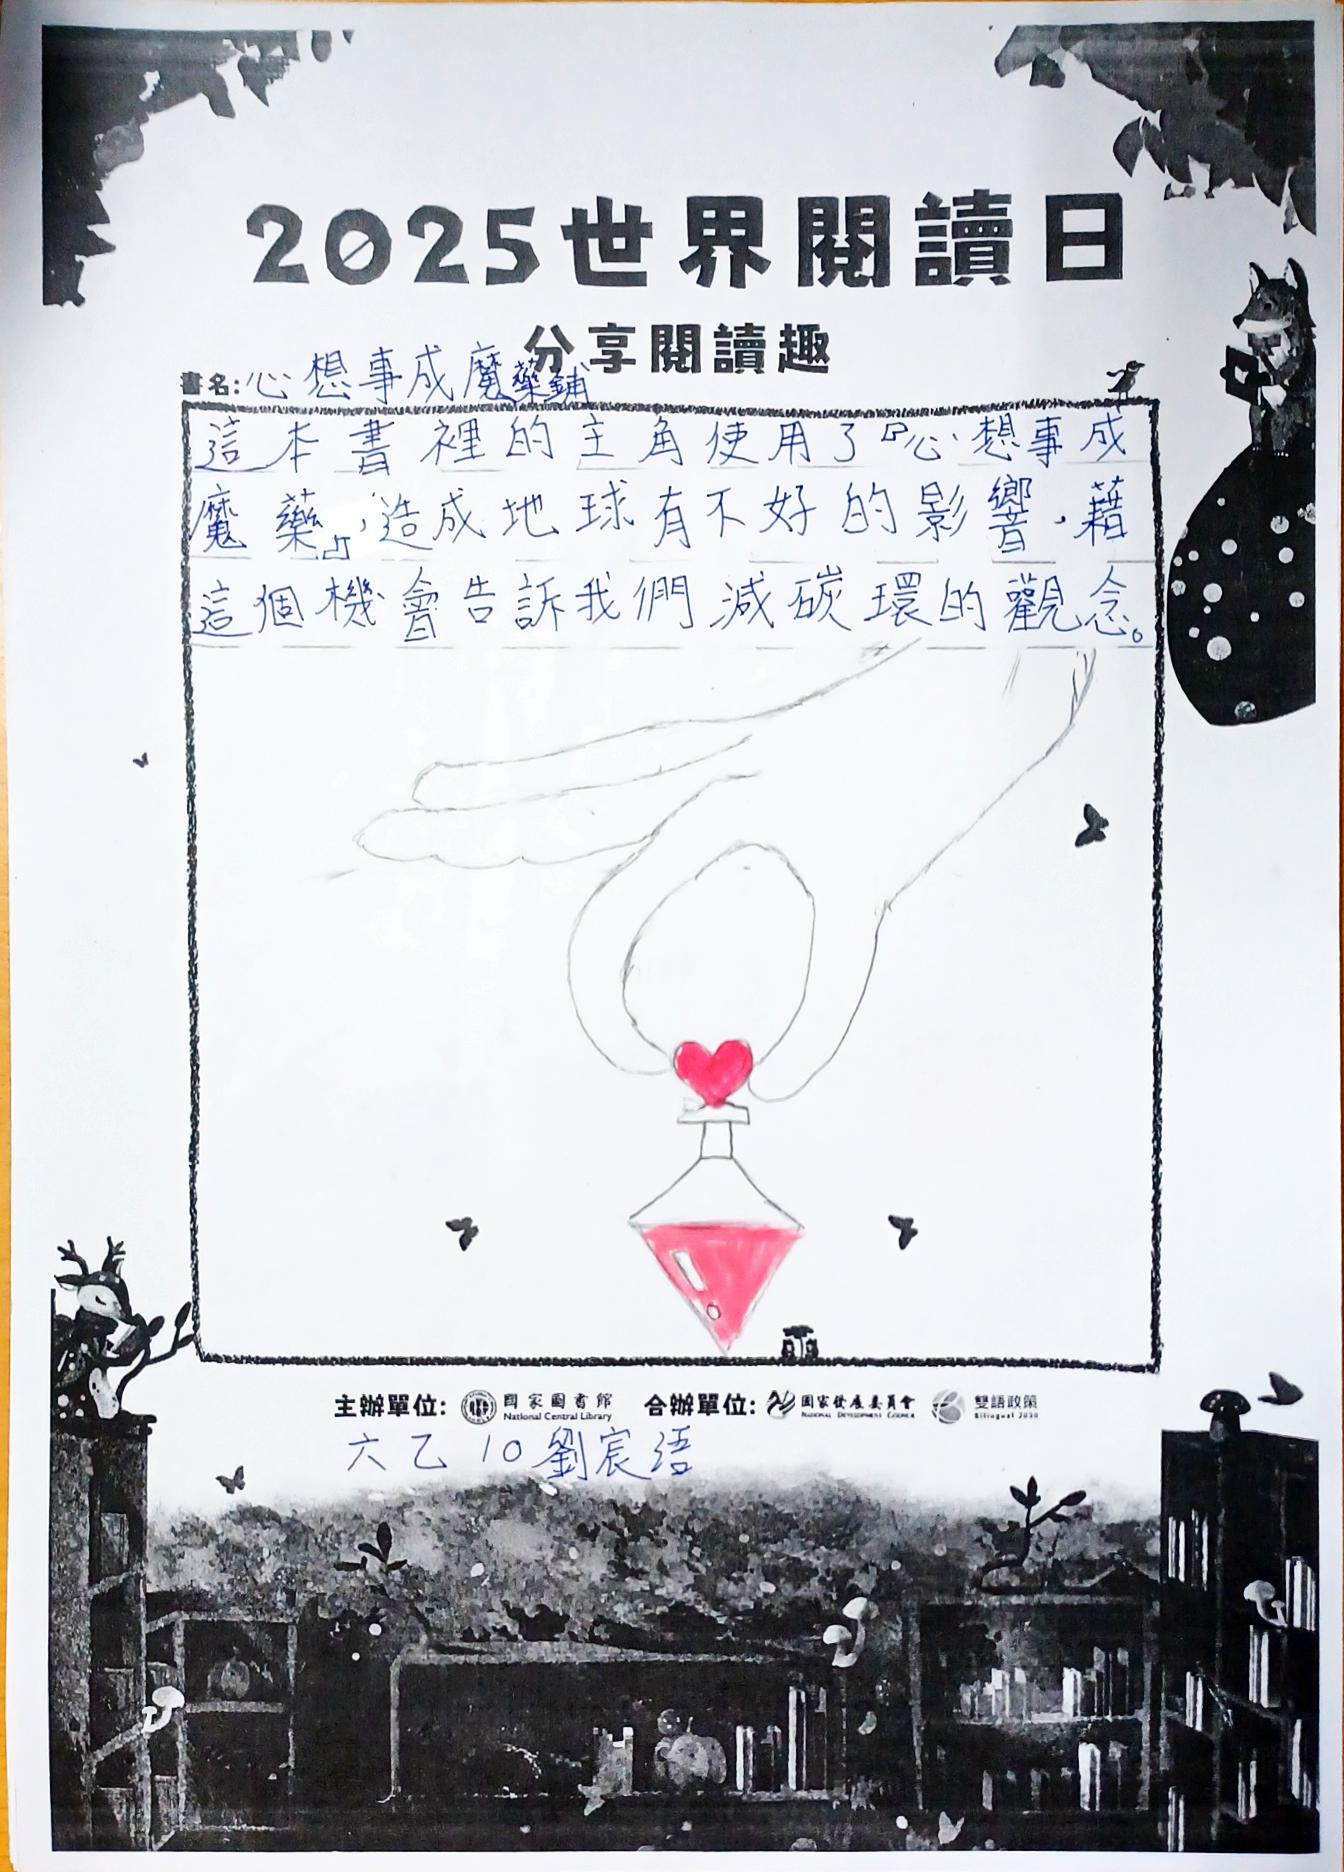 2025世界閱讀日
分享閱讀趣
書名:心想事成魔藥鋪
這本書裡的主角使用了『心想事成
魔藥』,造成地球有不好的影響,藉
這個機會告訴我們減碳環的觀念。
主辦單位: 國家圖書館 National Central Library 合辦單位: 國家發展委員會 National Development Council 雙語政策 Bilingual 2030
六乙 10 劉宸语